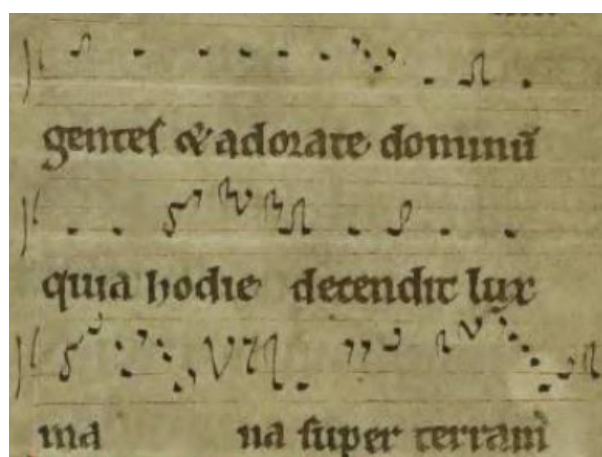 gentes & adorate dominū
quia hodie decendit lux
ma na super terram